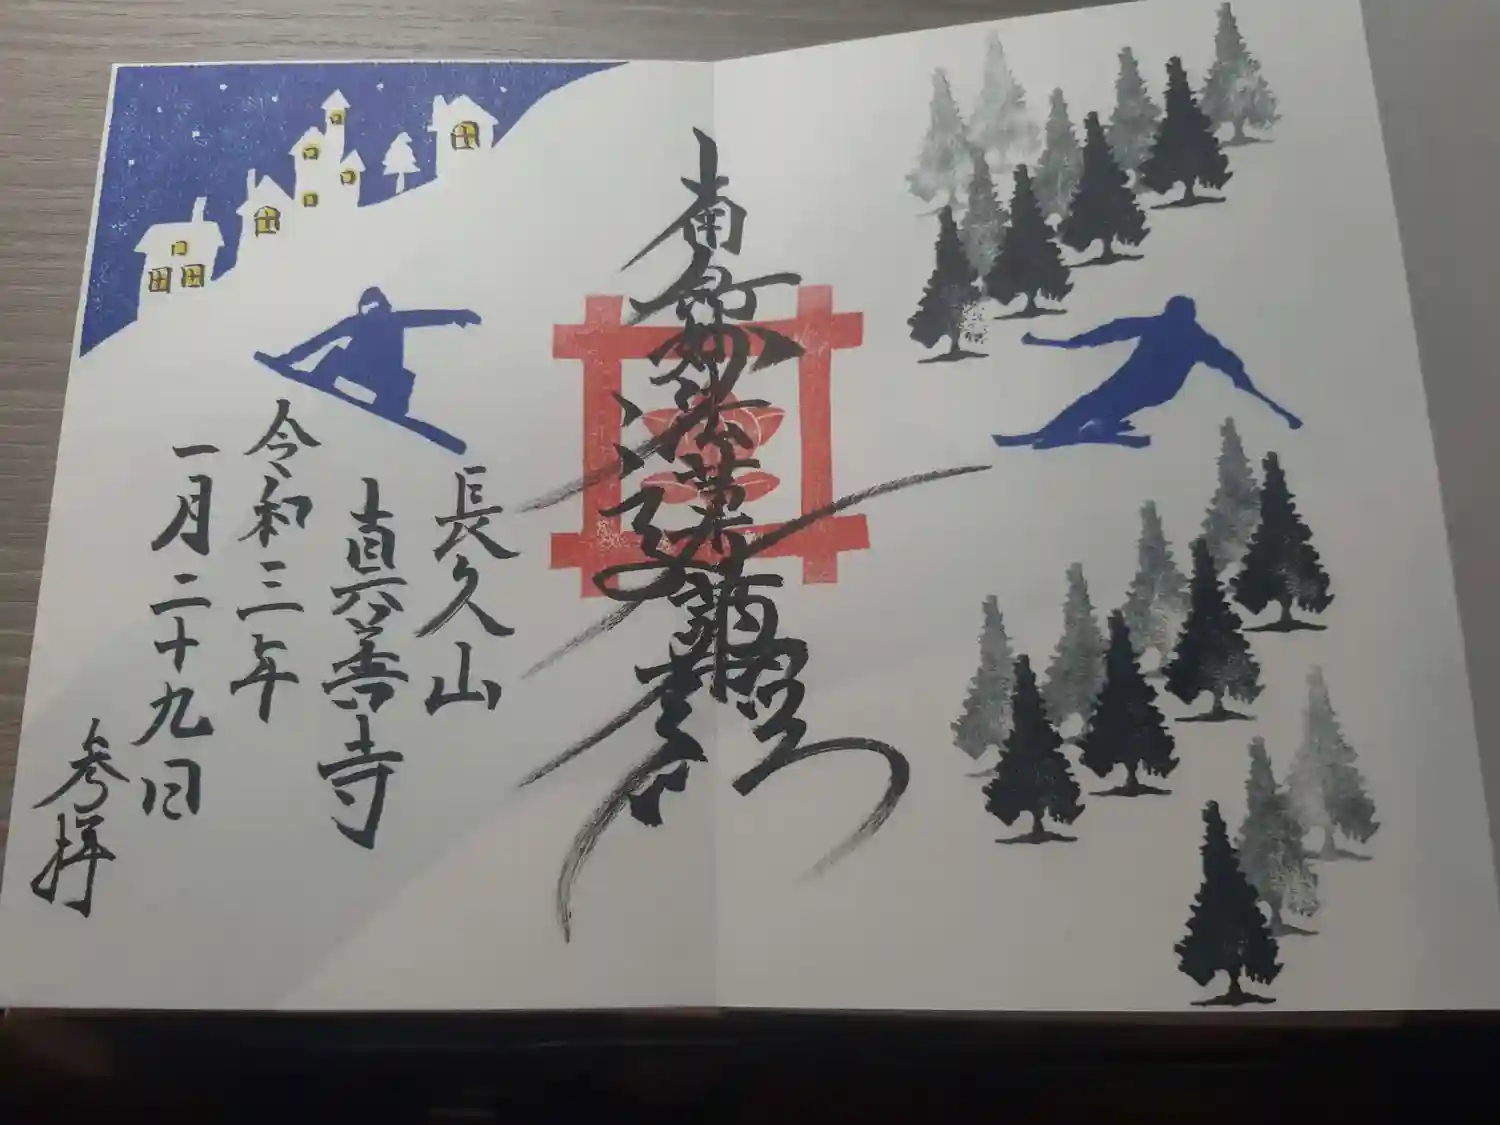 南無妙法蓮華経
長久山
真善寺
令和三年
一月二十九日
参拝